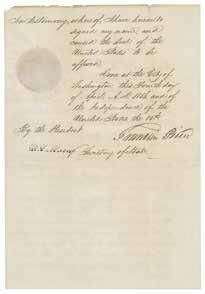 In testimony, whereof, I have hereunto
signed my name, and
caused the Seal of the
United States to be
affixed.
Done at the City of
Washington, this Fourth day
of April, A.D. 1854 and of
the Independence of the
United States the
By the President:
Franklin Pierce
W. L. Marcy Secretary of State.